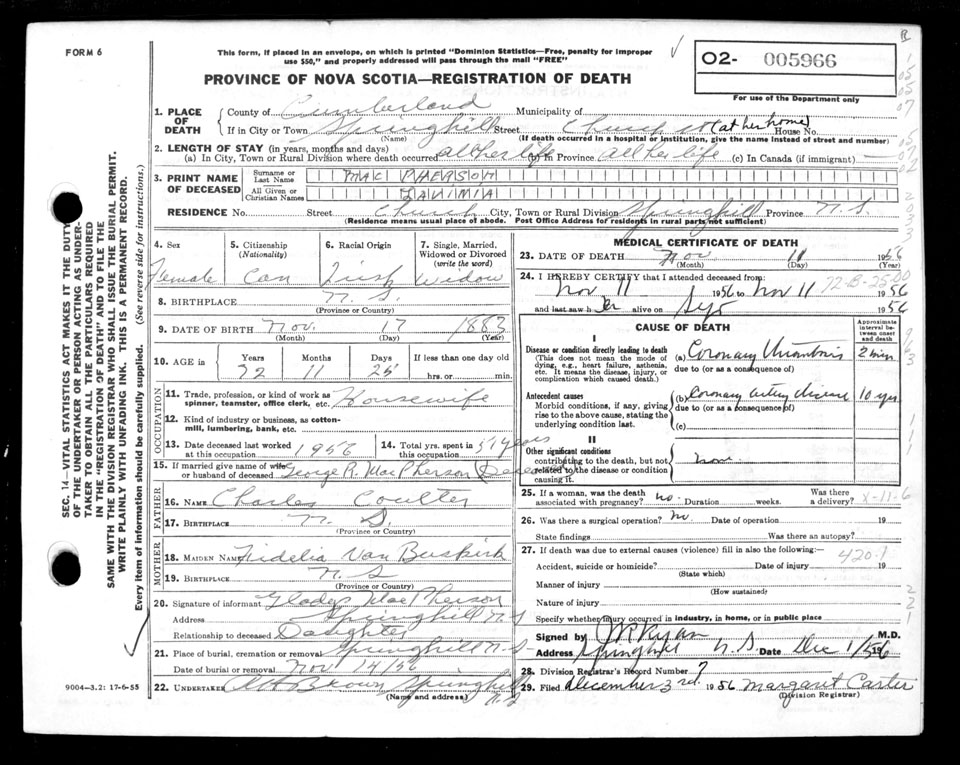 FORM 6
This form, if placed in an envelope, on which is printed "Dominion Statistics—Free, penalty for improper
use $50," and properly addressed will pass through the mail "FREE"
PROVINCE OF NOVA SCOTIA—REGISTRATION OF DEATH
02- 005966
For use of the Department only
1. PLACE OF DEATH
County of Cumberland Municipality of
If in City or Town Springhill Street Church St (at her home) House No.
(Name) (If death occurred in a hospital or institution, give the name instead of street and number)
2. LENGTH OF STAY (in years, months and days)
(a) In City, Town or Rural Division where death occurred all her life (b) in Province all her life (c) In Canada (if immigrant) —
3. PRINT NAME OF DECEASED
Surname or Last Name MAC PHERSON
All Given or Christian Names
RESIDENCE No. Street Church City, Town or Rural Division Springhill Province N.S.
(Residence means usual place of abode. Post Office Address for residents in rural parts not sufficient)
4. Sex Female
5. Citizenship (Nationality) Can
6. Racial Origin Irish
7. Single, Married, Widowed or Divorced (write the word) Widow
8. BIRTHPLACE N.S.
(Province or Country)
9. DATE OF BIRTH Nov. 17 1883
(Month) (Day) (Year)
10. AGE in Years 72 Months 11 Days 25 If less than one day old hrs. or min.
OCCUPATION
11. Trade, profession, or kind of work as spinner, teamster, office clerk, etc. Housewife
12. Kind of industry or business, as cotton-mill, lumbering, bank, etc.
13. Date deceased last worked at this occupation 1956
14. Total yrs. spent in this occupation 51 years
15. If married give name of wife or husband of deceased George R. MacPherson (Deceased)
FATHER
16. NAME Charles Coulter
17. BIRTHPLACE N.S.
(Province or Country)
MOTHER
18. MAIDEN NAME Fidelia Van Buskirk
19. BIRTHPLACE N.S
(Province or Country)
20. Signature of informant Gladys MacPherson
Address Springhill N.S
Relationship to deceased Daughter
21. Place of burial, cremation or removal Springhill N.S
Date of burial or removal Nov 14/56
22. UNDERTAKER Brown Springhill N.S
(Name and address)
MEDICAL CERTIFICATE OF DEATH
23. DATE OF DEATH Nov 11 1956
(Month) (Day) (Year)
24. I HEREBY CERTIFY that I attended deceased from:
Nov 11 1956 to Nov 11 1956
and last saw her alive on 1956
CAUSE OF DEATH
Approximate interval between onset and death
I
Disease or condition directly leading to death (a) Coronary thrombosis 2 min
(This does not mean the mode of dying, e.g., heart failure, asthenia, etc. It means the disease, injury, or complication which caused death.)
due to (or as a consequence of)
Antecedent causes (b) Coronary artery disease 10 yrs
Morbid conditions, if any, giving rise to the above cause, stating the underlying condition last.
due to (or as a consequence of)
(c)
II
Other significant conditions contributing to the death, but not related to the disease or condition causing it. none
25. If a woman, was the death associated with pregnancy? no. Duration weeks. Was there a delivery? X-11-6
26. Was there a surgical operation? no. Date of operation 19
State findings Was there an autopsy?
27. If death was due to external causes (violence) fill in also the following:—
420.1
Accident, suicide or homicide? Date of injury 19
(State which)
Manner of injury
(How sustained)
Nature of injury
Specify whether injury occurred in industry, in home, or in public place
Signed by JR Ryan M.D.
Address Springhill N.S. Date Dec 1/56
28. Division Registrar's Record Number 7
29. Filed December 3rd 1956 Margaret Carter
(Division Registrar)
SEC. 14—VITAL STATISTICS ACT MAKES IT THE DUTY
OF THE UNDERTAKER OR PERSON ACTING AS UNDER-
TAKER TO OBTAIN ALL THE PARTICULARS REQUIRED
IN THE "REGISTRATION OF DEATH" AND TO FILE THE
SAME WITH THE DIVISION REGISTRAR WHO SHALL ISSUE THE BURIAL PERMIT.
WRITE PLAINLY WITH UNFADING INK. THIS IS A PERMANENT RECORD.
Every item of information should be carefully supplied. (See reverse side for instructions.)
9004-3.2: 17-6-55